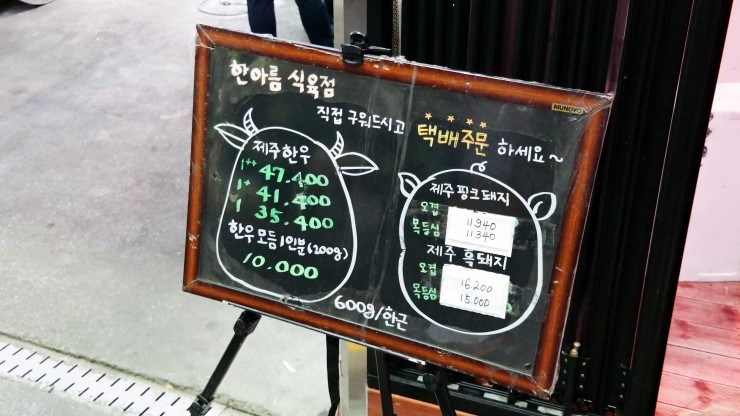 한아름 식육점
직접 구워드시고
택배주문 하세요~
MUNGYO
제주한우
1++ 47.400
1+ 41.400
1 35.400
한우모듬 1인분(200g)
10.000
제주 핑크돼지
오겹 11.940
목등심 11.340
제주 흑돼지
오겹 16.200
목등심 15.000
600g/한근